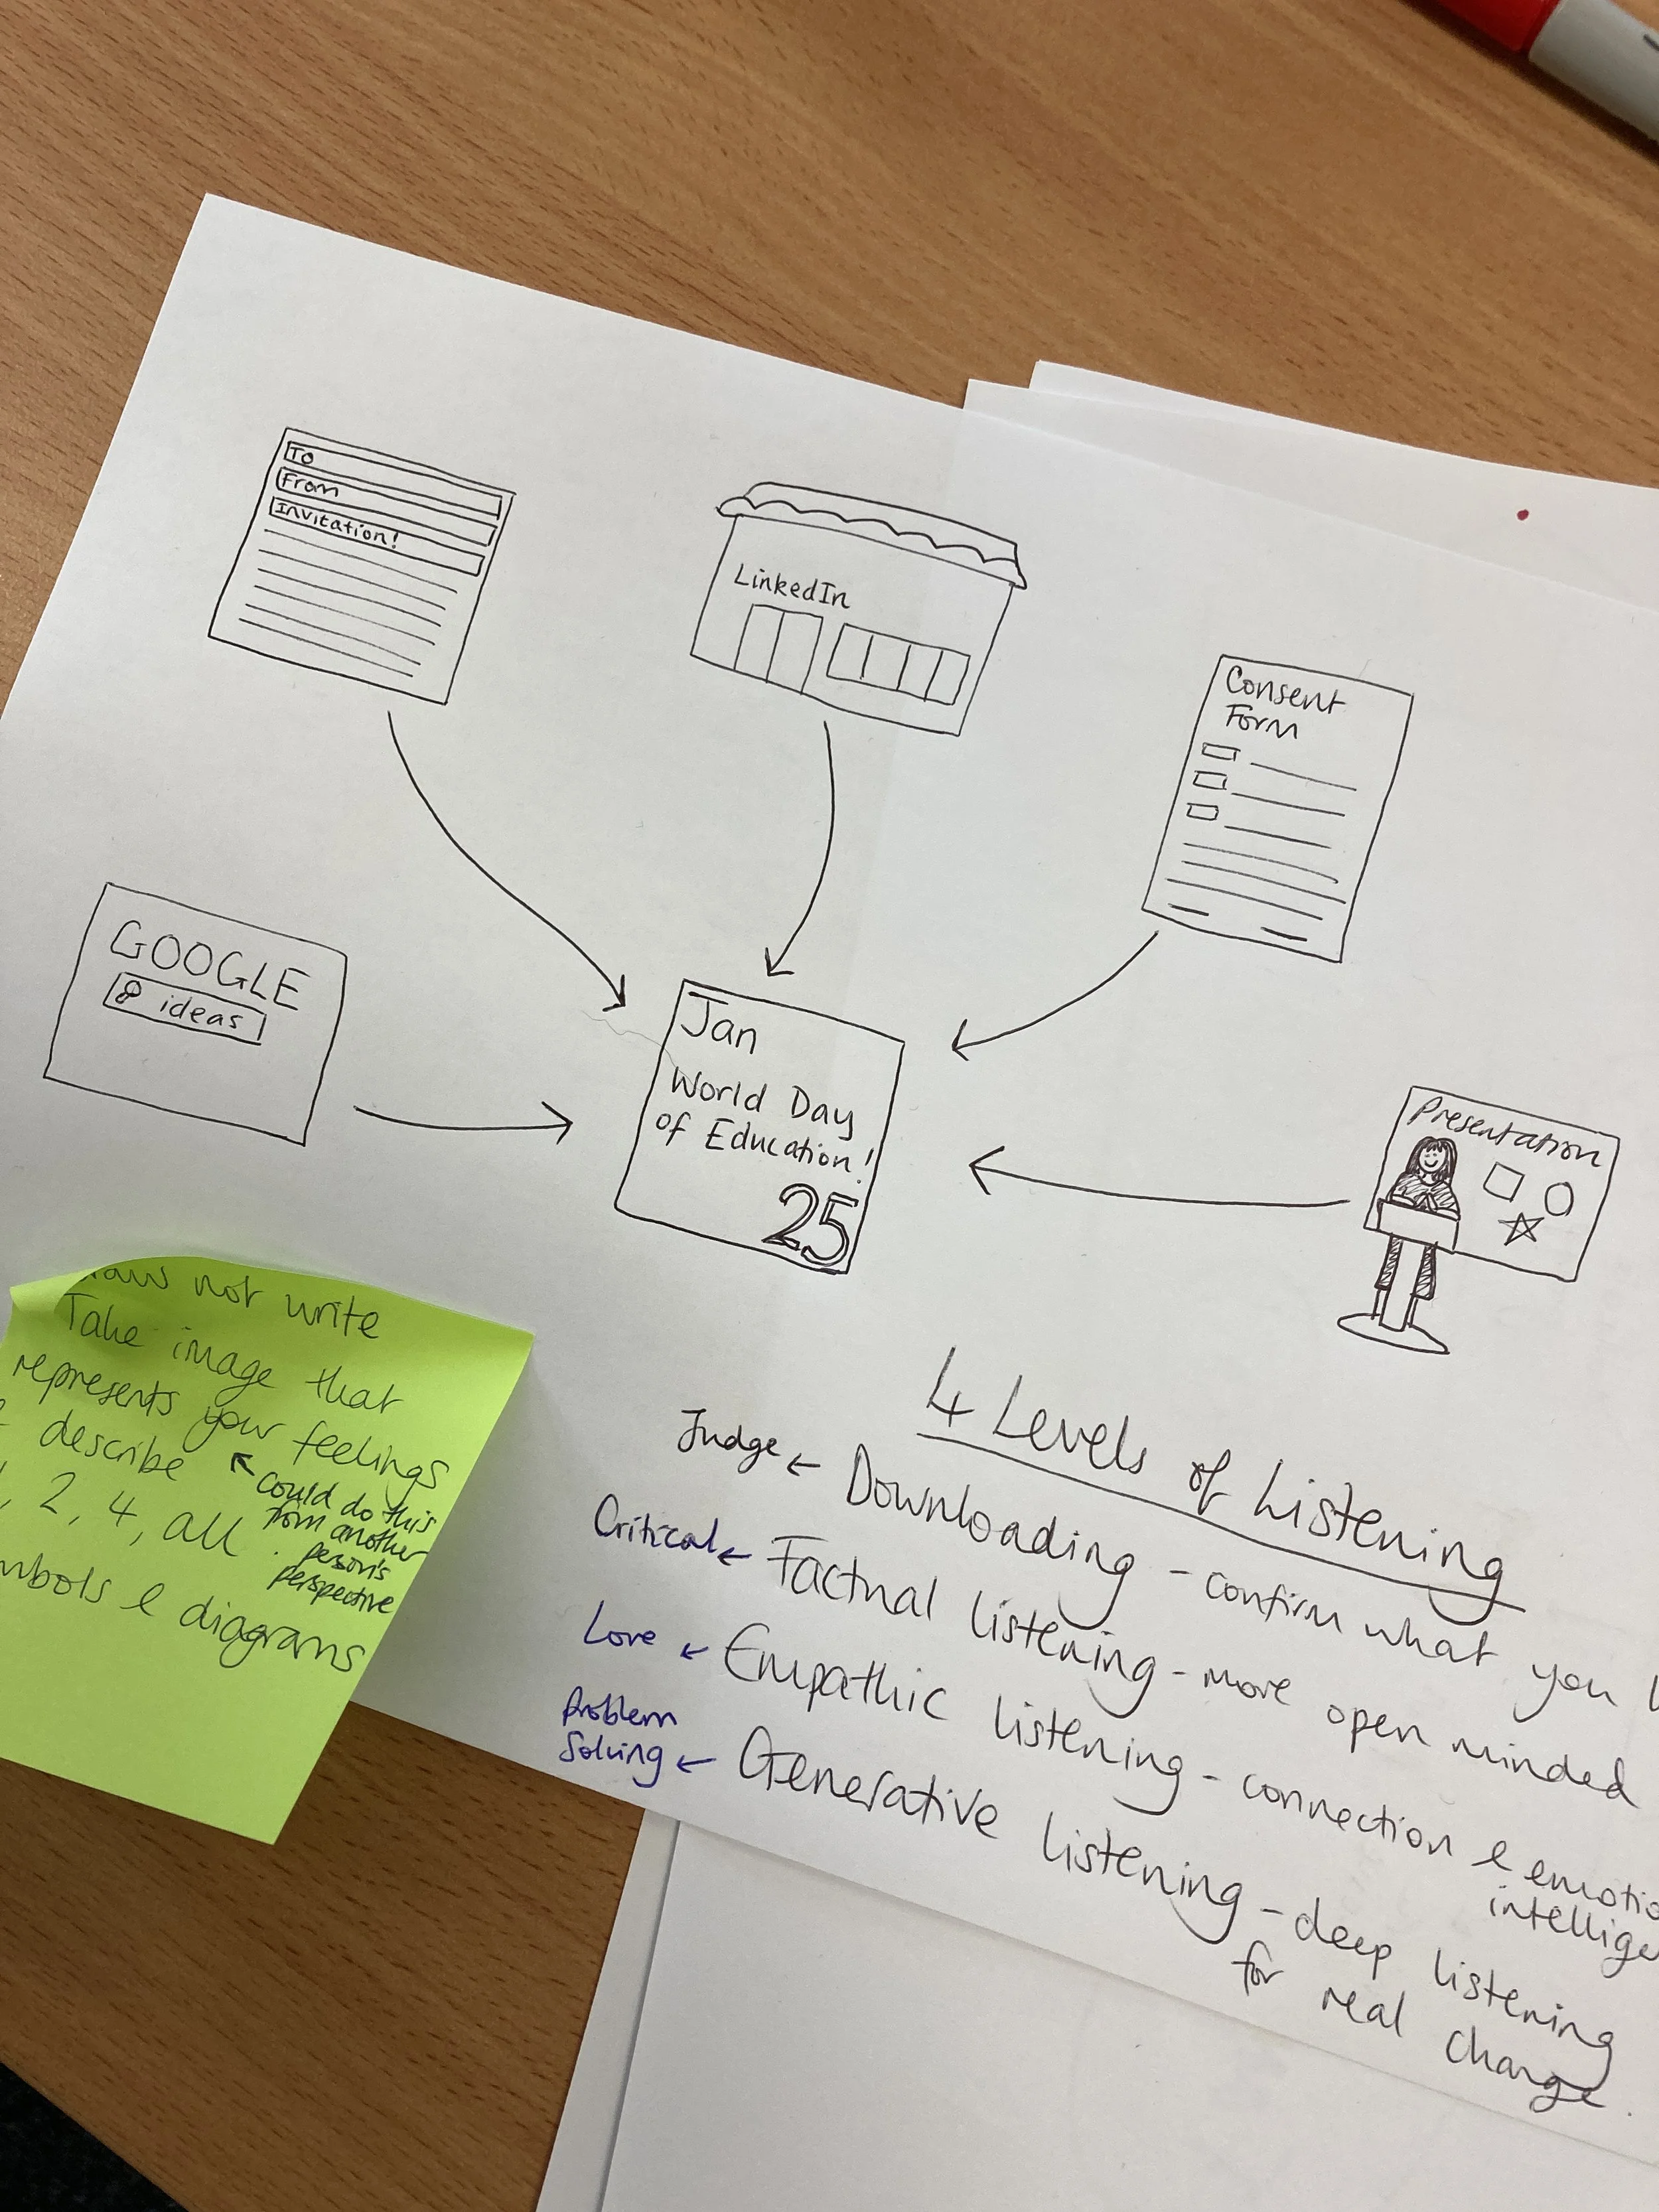 To
From
Invitation!
LinkedIn
Consent
Form
GOOGLE
ideas
Jan
World Day
of Education!
25
Presentation
not write
Take image that
represents your feelings
describe
could do this
from another
person's
perspective
2, 4, all
& diagrams
4 Levels of Listening
Judge ← Downloading - confirm what you
Critical ← Factual listening - more open minded
Love ← Empathic listening - connection &
Problem
Solving ← Generative listening - deep listening
for real change.